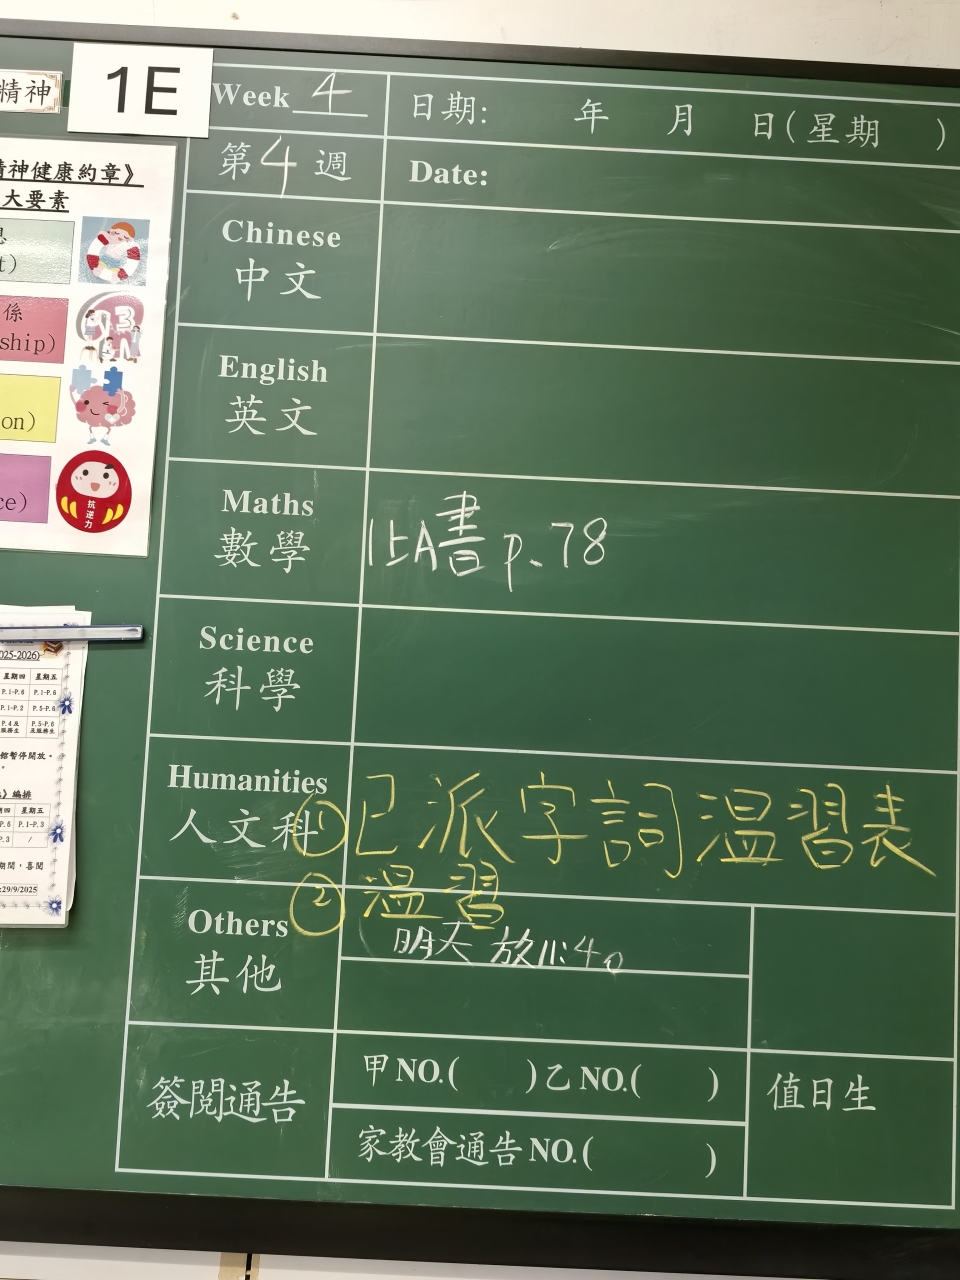 精神
1E
Week 4
日期: 年 月 日(星期 )
第4週
Date:
精神健康約章》
大要素
息
t)
係
ship)
on)
ce)
抗逆力
Chinese
中文
English
英文
Maths
數學
上A書 p.78
Science
科學
Humanities
人文科
①已派字詞溫習表
②溫習
Others
其他
明天 放11:40
簽閱通告
甲 NO.( ) 乙 NO.( )
家教會通告 NO.( )
值日生
025-2026)
星期四 星期五
P.1-P.6 P.1-P.6
P.1-P.2 P.5-P.6
P.4及 P.5-P.6
服務生 及服務生
館暫停開放。
》編排
四 星期五
P.6 P.1-P.3
P.3 /
期間,喜閱
:29/9/2025